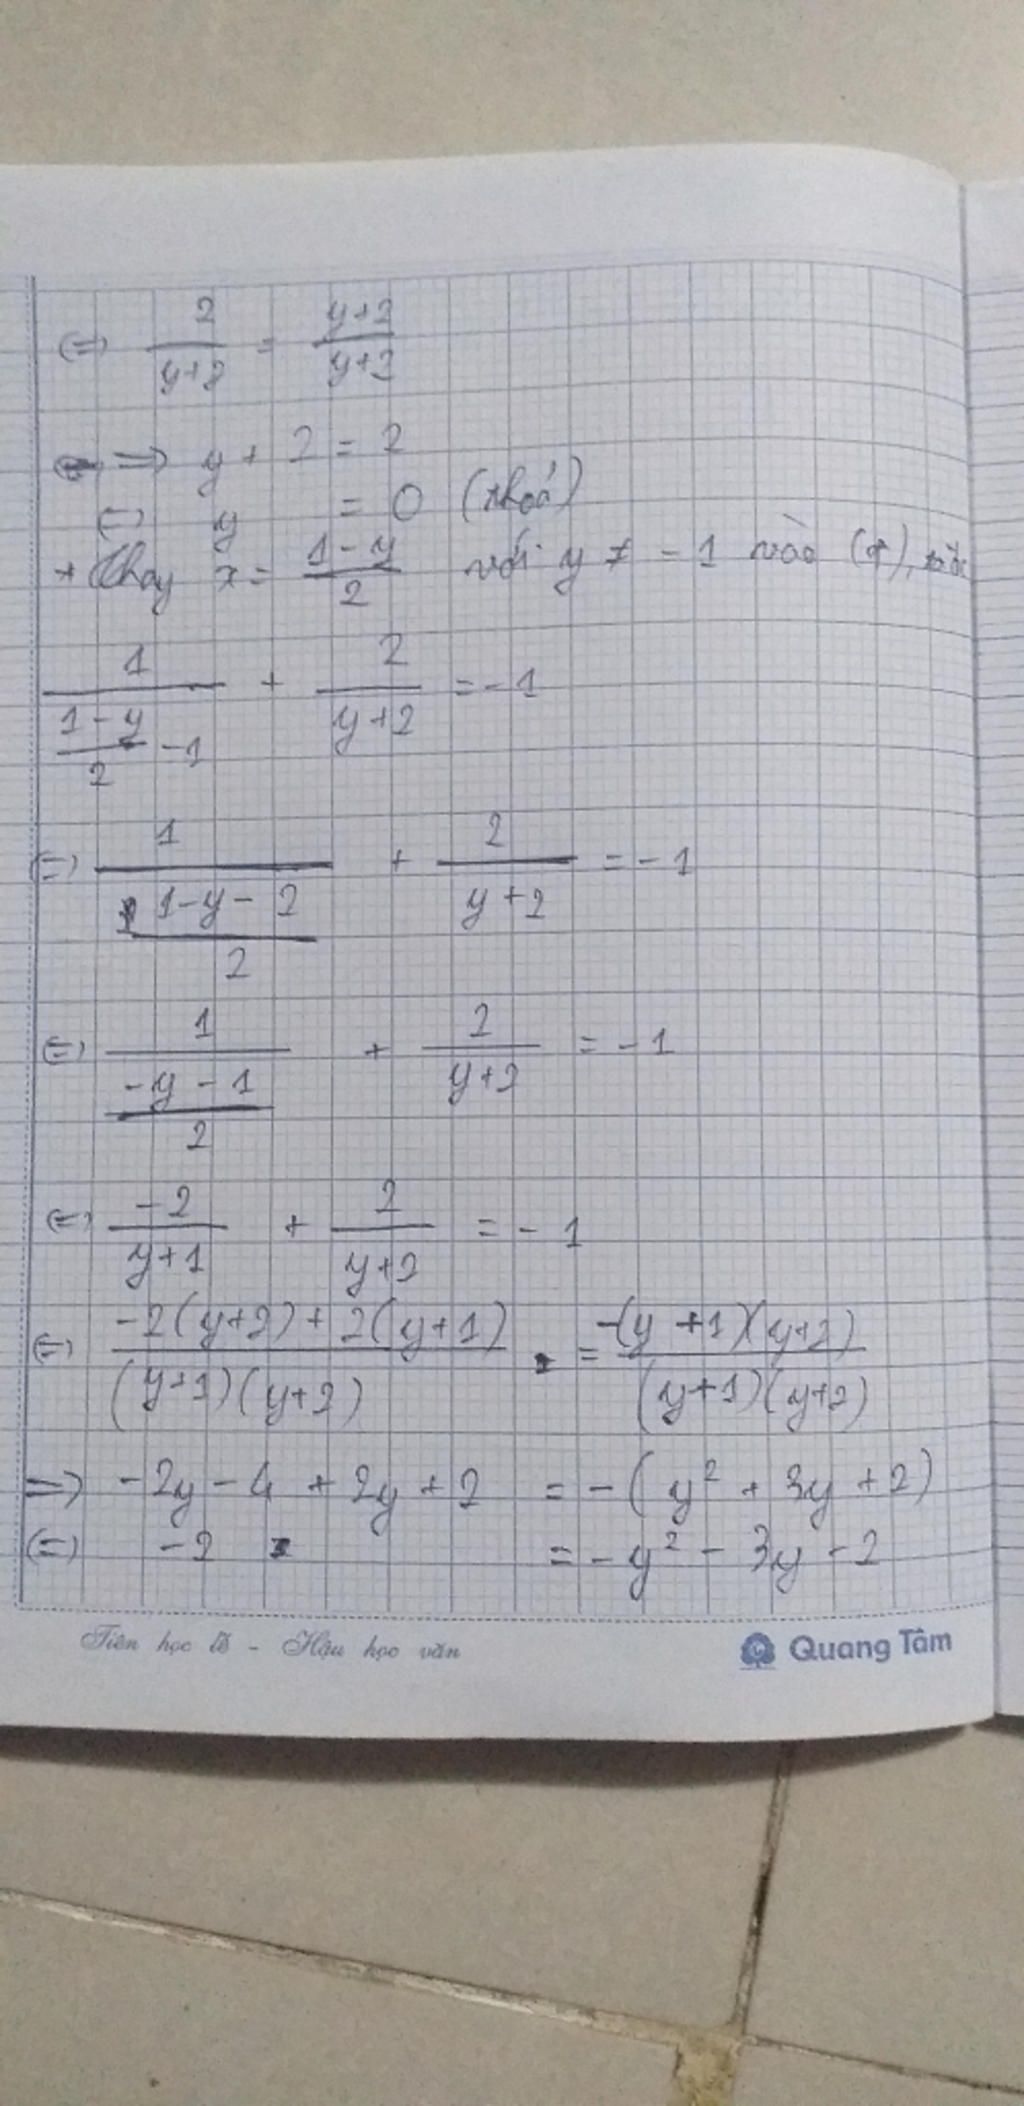 (=) 2/(y+2) = (y+2)/(y+2)
=> y + 2 = 2
(=) y = 0 (thoả)
+ Thay x = (1-y)/2 với y ≠ -1 vào (*),
1/((1-y)/2 - 1) + 2/(y+2) = -1
(=) 1/((1-y-2)/2) + 2/(y+2) = -1
(=) 1/((-y-1)/2) + 2/(y+2) = -1
(=) -2/(y+1) + 2/(y+2) = -1
(=) (-2(y+2)+2(y+1))/((y+1)(y+2)) = (-(y+1)(y+2))/((y+1)(y+2))
=> -2y - 4 + 2y + 2 = -(y² + 3y + 2)
(=) -2 = -y² - 3y - 2
Tiên học lễ - Hậu học văn
Quang Tâm